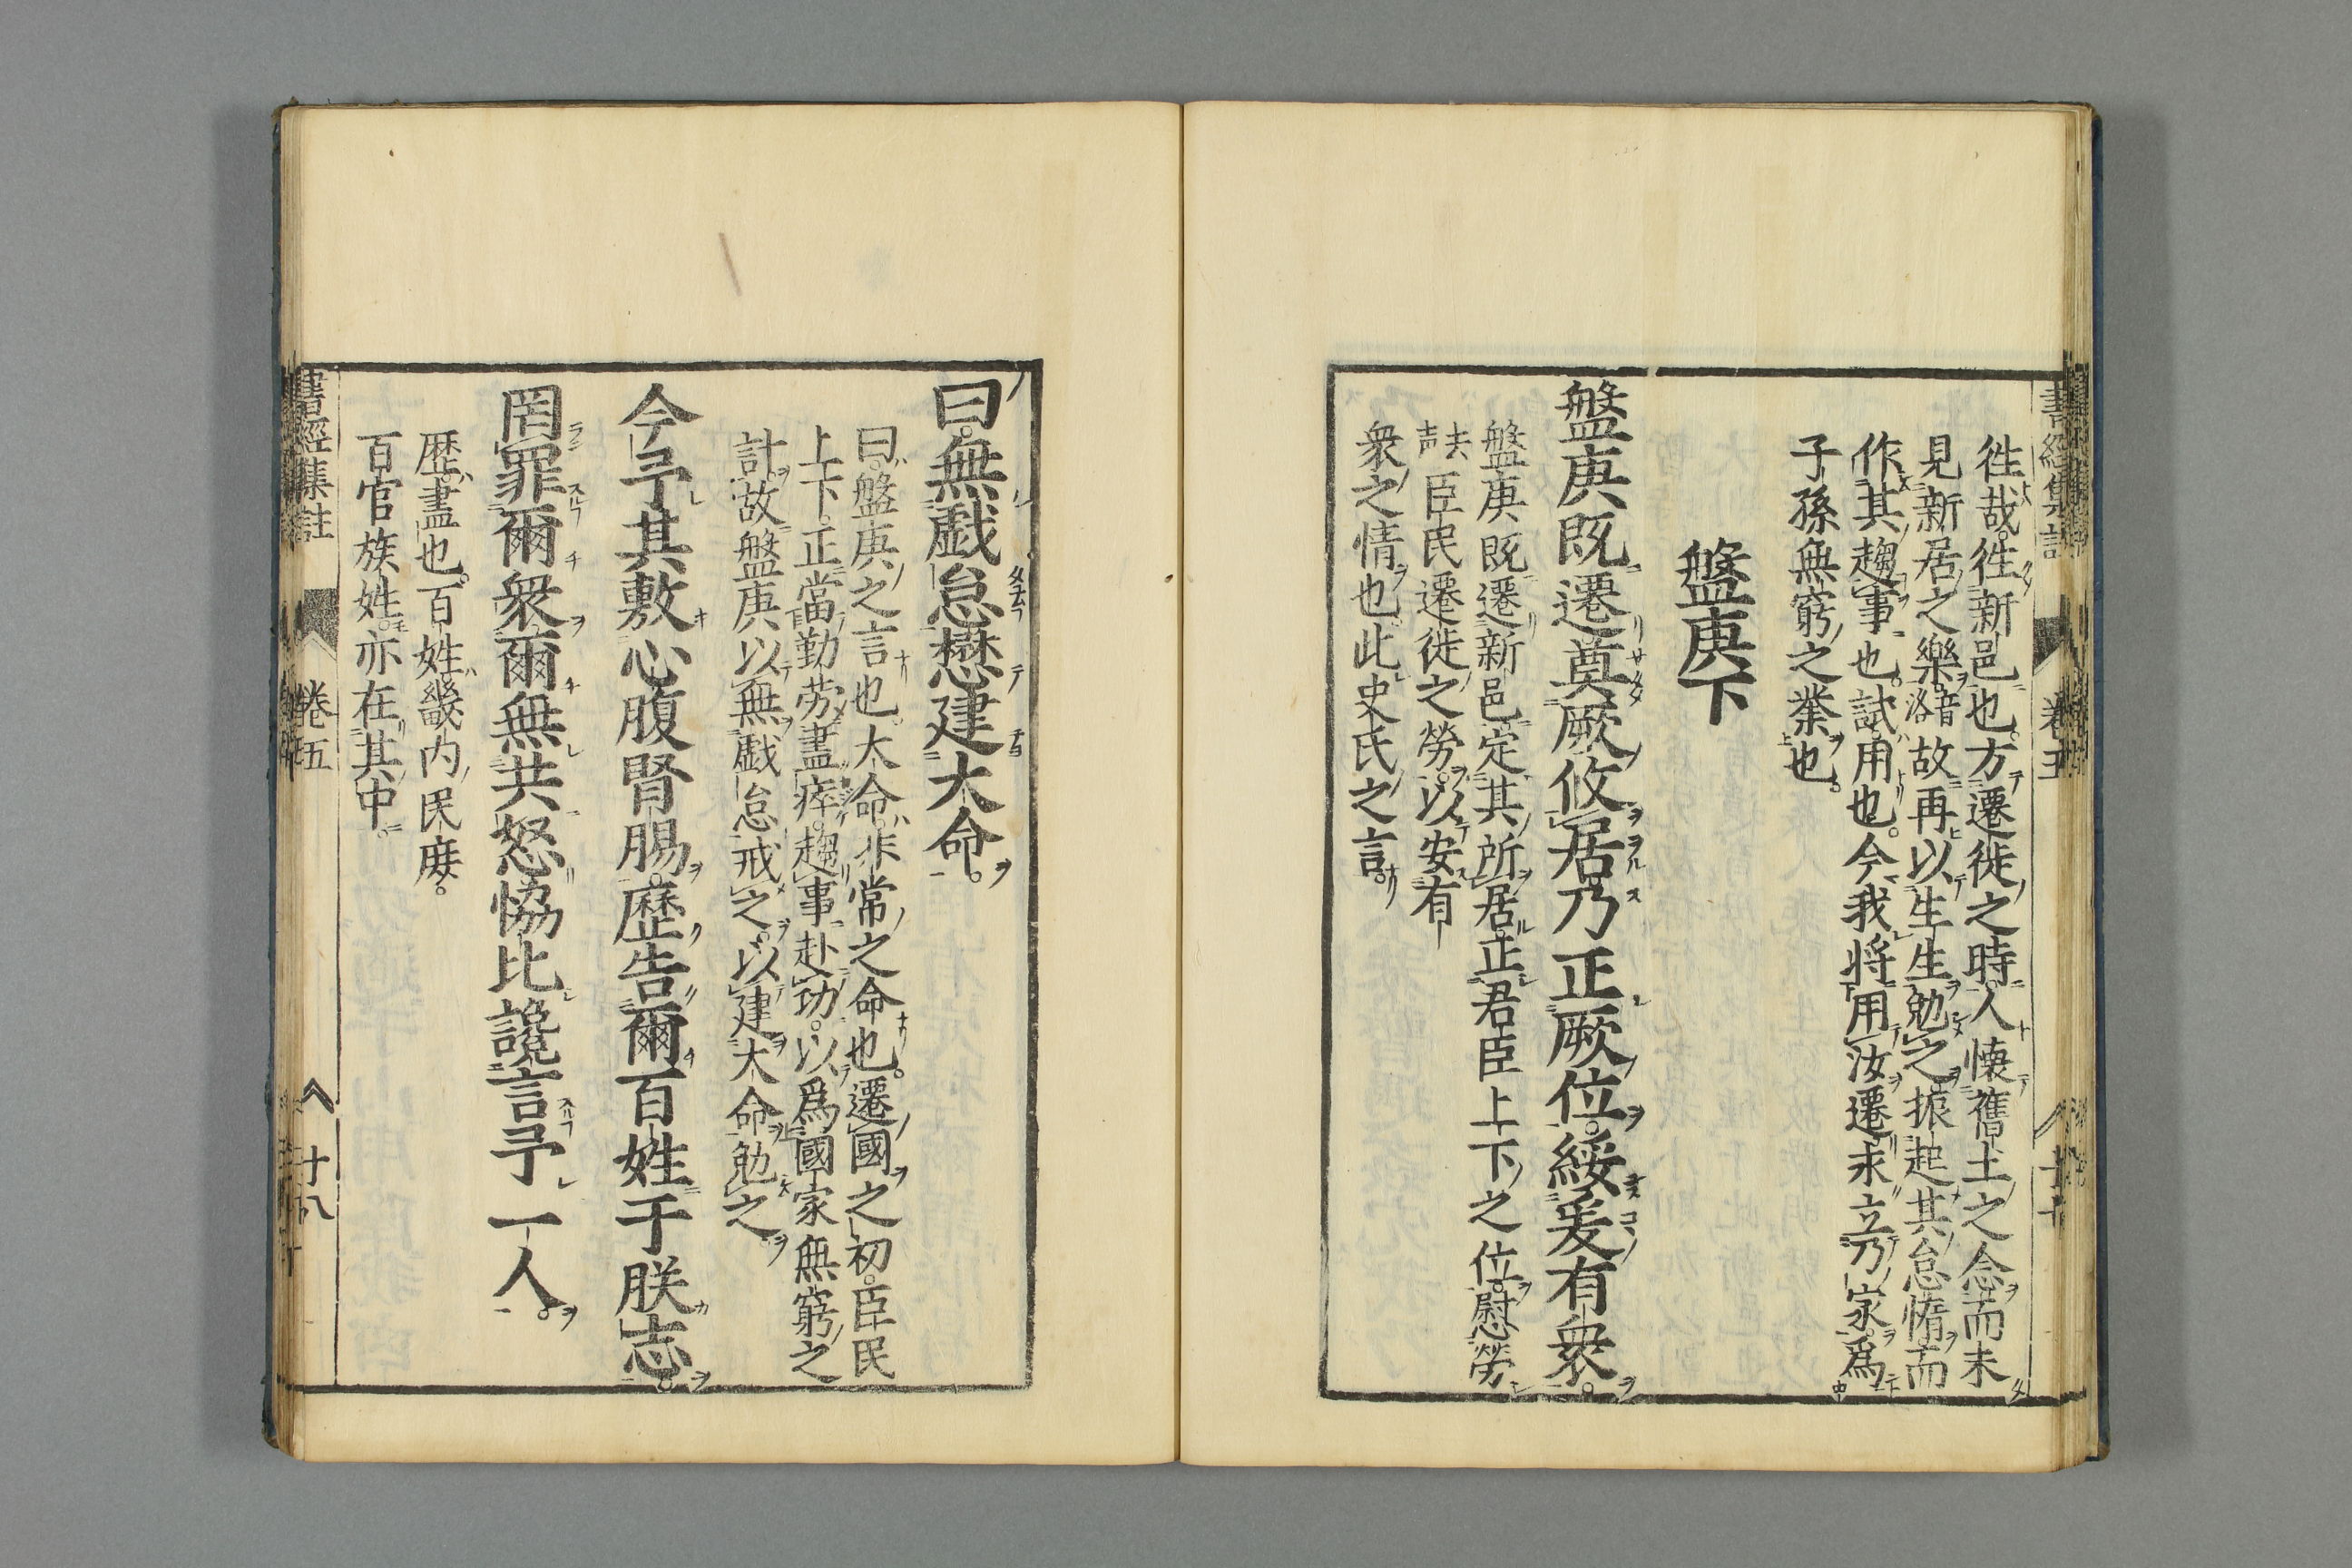 徃哉徃新邑也。方遷徙之時。人懐舊土之念而未
見新居之樂音洛故再以生生勉之。振起其怠惰而
作其趨事也。試用也。今我將用汝遷永立乃家。爲
子孫無窮之業也。
盤庚下
盤庚既遷奠厥攸居乃正厥位。綏爰有衆。
盤庚既遷新邑定其所居正君臣上下之位。慰勞
去声臣民遷徙之勞。以安有
衆之情也。此史氏之言。
曰。無戯怠懋建大命。
曰。盤庚之言也。大命。非常之命也。遷國之初。臣民
上下。正當勤労盡瘁。趨事赴功。以爲國家無窮之
計。故盤庚以無戯怠戒之。以建大命勉之
今予其敷心腹腎腸。歷告爾百姓于朕志。
罔罪爾衆。爾無共怒恊比讒言予一人。
歴。盡也。百姓畿内民庶。
百官族姓。亦在其中。
書經集註 卷五 十八